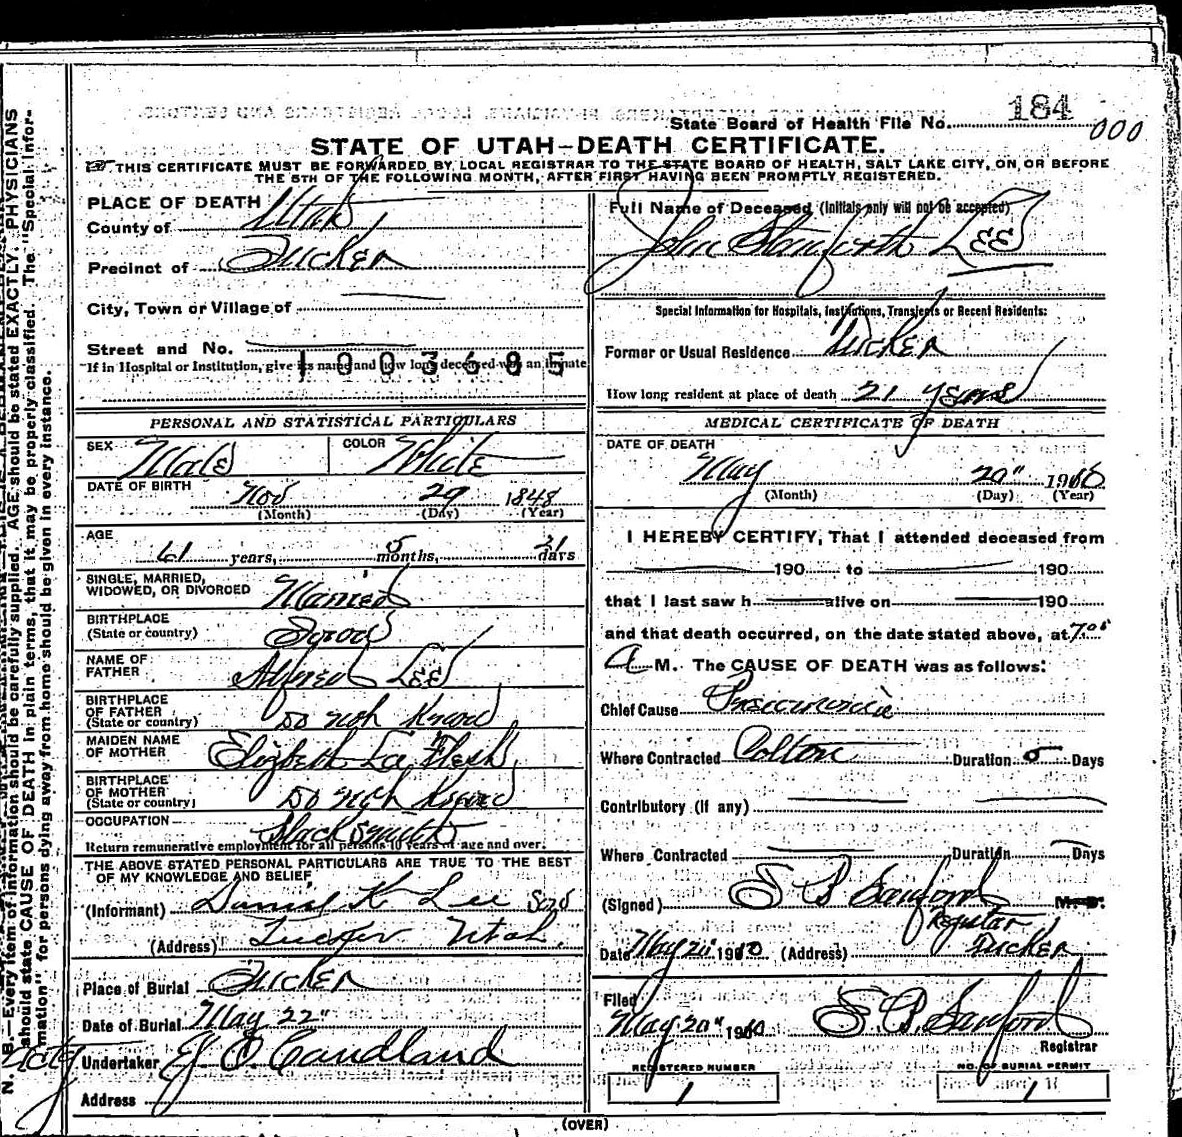 State Board of Health File No. 184
000
STATE OF UTAH—DEATH CERTIFICATE.
THIS CERTIFICATE MUST BE FORWARDED BY LOCAL REGISTRAR TO THE STATE BOARD OF HEALTH, SALT LAKE CITY, ON OR BEFORE
THE 5TH OF THE FOLLOWING MONTH, AFTER FIRST HAVING BEEN PROMPTLY REGISTERED.
PLACE OF DEATH
County of Utah
Precinct of Tucker
City, Town or Village of
Street and No.
1003685
If in Hospital or Institution, give its name and how long deceased was an inmate
PERSONAL AND STATISTICAL PARTICULARS
SEX Male COLOR White
DATE OF BIRTH Nov 29 1848
(Month) (Day) (Year)
AGE
61 years, 5 months, 21 days
SINGLE, MARRIED,
WIDOWED, OR DIVORCED Married
BIRTHPLACE
(State or country)
NAME OF
FATHER Alfred Lee
BIRTHPLACE
OF FATHER
(State or country) Do not Know
MAIDEN NAME
OF MOTHER Elizbeth La Flesh
BIRTHPLACE
OF MOTHER
(State or country) Do not Know
OCCUPATION Black Smith
Return remunerative employment for all persons 10 years of age and over.
THE ABOVE STATED PERSONAL PARTICULARS ARE TRUE TO THE BEST
OF MY KNOWLEDGE AND BELIEF
(Informant) Daniel K Lee Son
(Address) Tucker Utah.
Place of Burial Tucker
Date of Burial May 22"
Undertaker J O Candland
Address
Full Name of Deceased (Initials only will not be accepted)
John Stanforth Lee
Special Information for Hospitals, Institutions, Transients or Recent Residents:
Former or Usual Residence Tucker
How long resident at place of death 21 years
MEDICAL CERTIFICATE OF DEATH
DATE OF DEATH
May 20" 1910
(Month) (Day) (Year)
I HEREBY CERTIFY, That I attended deceased from
190 to 190
that I last saw h alive on 190
and that death occurred, on the date stated above, at 7.
A M. The CAUSE OF DEATH was as follows:
Chief Cause Pneumonia
Where Contracted Colton Duration 5 Days
Contributory (if any)
Where Contracted Duration Days
(Signed) S B Sanford M. D.
Registar
Date May 20" 1910 (Address) Tucker
Filed
May 20" 1910 S. B. Sanford
Registrar
REGISTERED NUMBER
1
NO. OF BURIAL PERMIT
1
(OVER)
N. B.—Every item of information should be carefully supplied. AGE should be stated EXACTLY. PHYSICIANS
should state CAUSE OF DEATH in plain terms, that it may be properly classified. The "Special Infor-
mation" for persons dying away from home should be given in every instance.